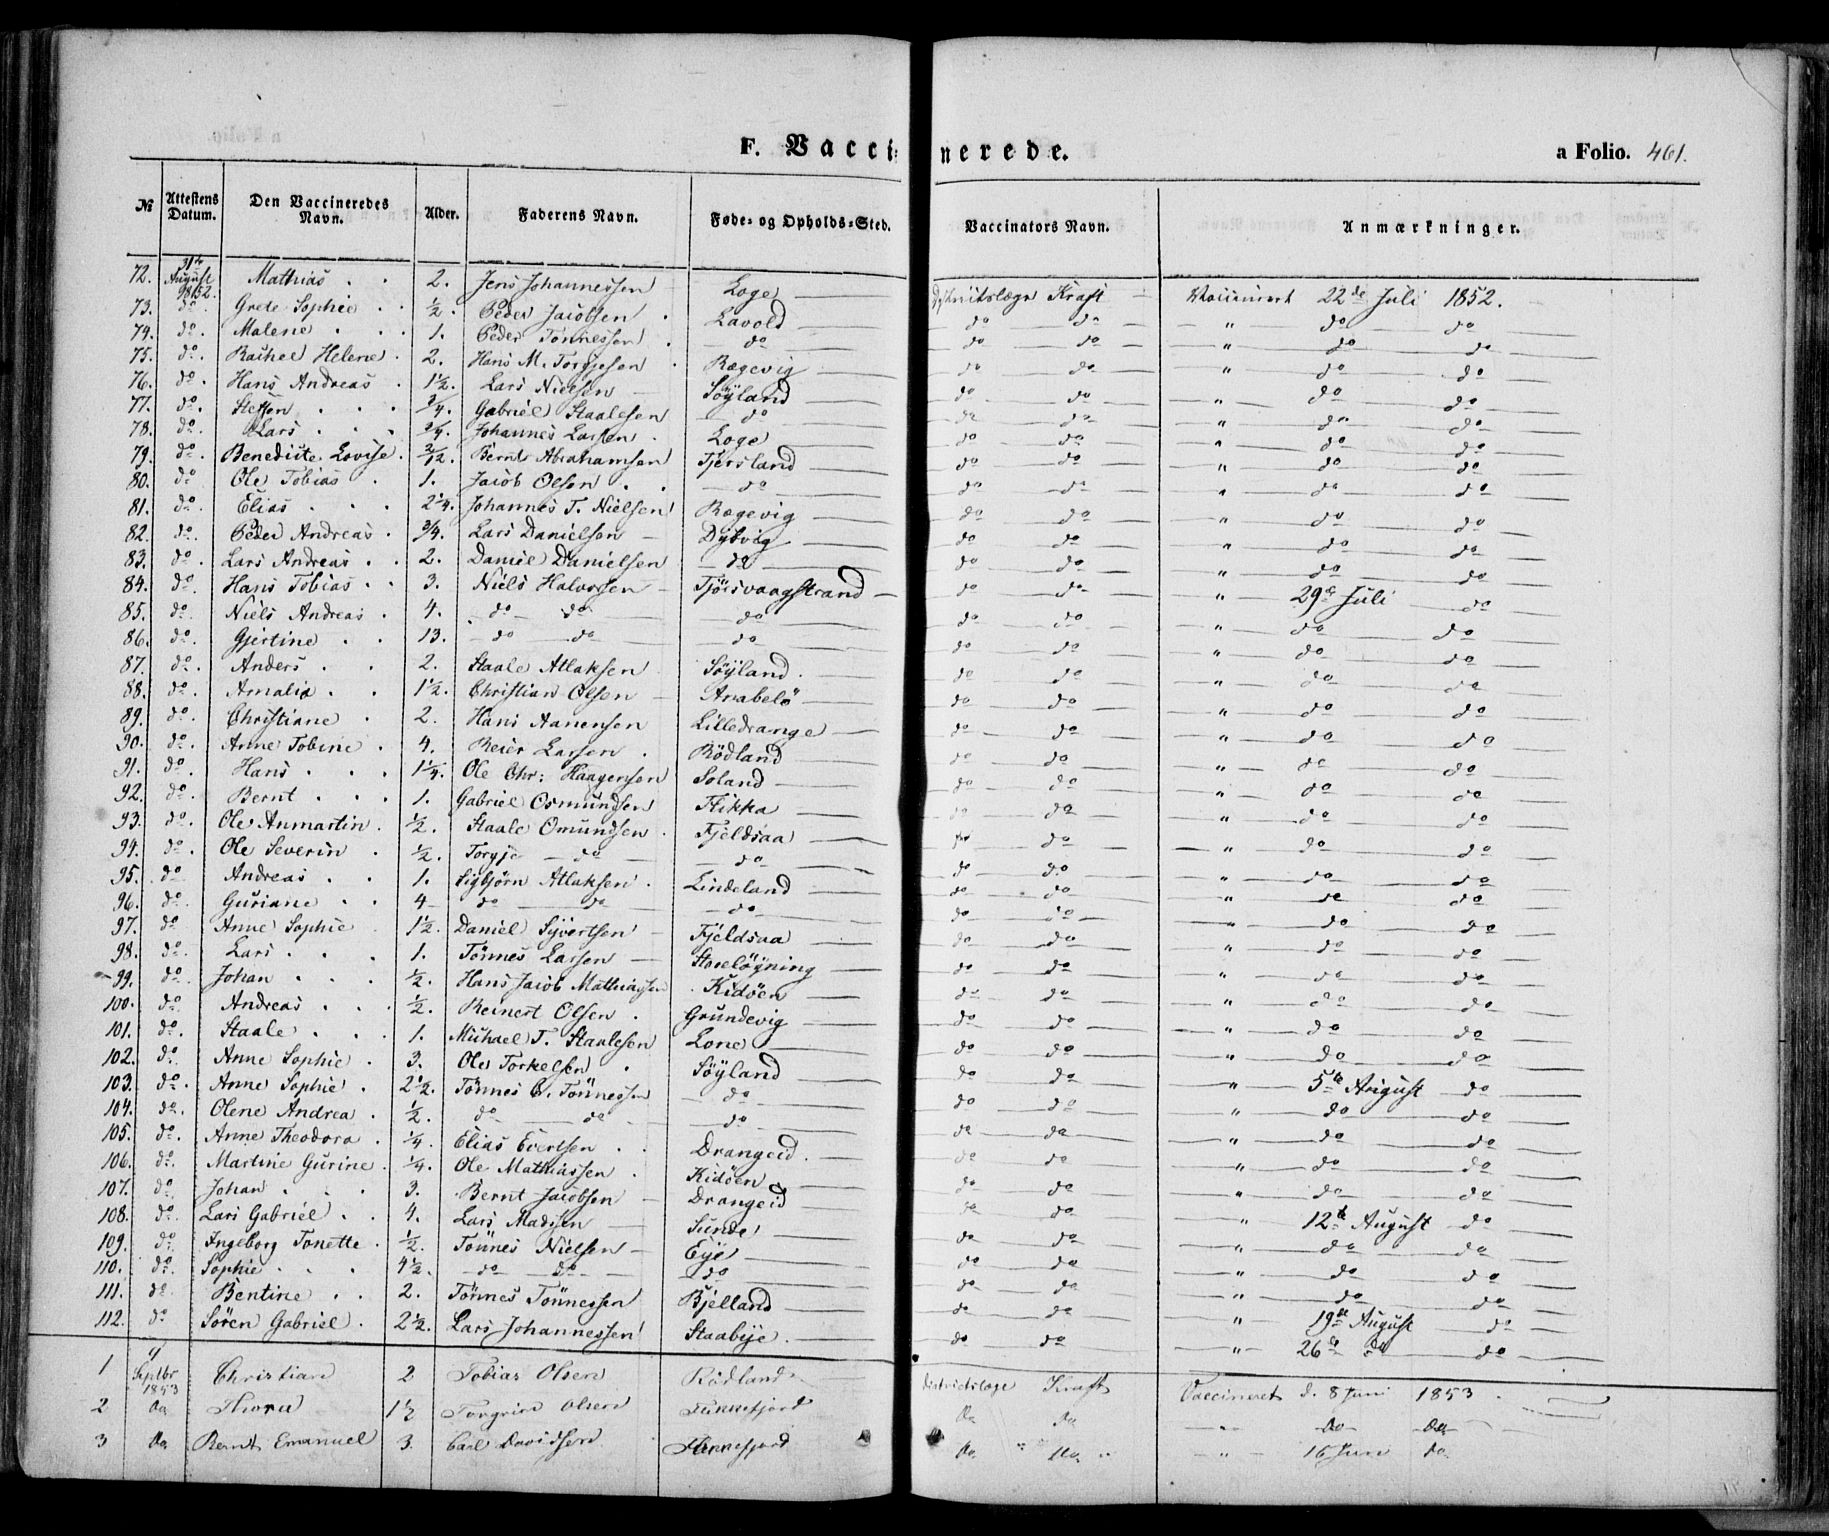 F. Vaccinerede. a Folio. 461.
№ | Attestens Datum. | Den Vaccineredes Navn. | Alder. | Faderens Navn. | Føde- og Opholds-Sted. | Vaccinators Navn. | Anmærkninger.
72. | August 1852. | Mathias | 2. | Jens Johannessen | Loge | Kraft | 22de Juli 1852.
73. | do. | Grete Sophie | ½. | Peder Jacobsen | Lavold | do do | " do do
74. | do. | Malene | 1. | Peder Tönnessen | do | do do | " do do
75. | do. | Rachel Helene | 2. | Hans M. Torgjesen | Rægevig | do do | " do do
76. | do. | Hans Andreas | 1½. | Lars Nielsen | Söyland | do do | " do do
77. | do. | Steffen | ¾. | Gabriel Staalesen | do | do do | " do do
78. | do. | Lars | ¾. | Johannes Larsen | Loge | do do | " do do
79. | do. | Benedicte Lovise | Bernt Abrahamsen | Tjersland | do do | " do do
80. | do | Ole Tobias | 1. | Jacob Olsen | do | do do | " do do
81. | do. | Elias | 2¼. | Johannes T. Nielsen | Rægevig | do do | " do do
82. | do. | Peder Andreas | ¾. | Lars Danielsen | Dybvig | do do | " do do
83. | do. | Lars Andreas | 2. | Daniel Danielsen | do | do do | " do do
84. | do. | Hans Tobias | 3. | Niels Halvorsen | Tjörsvaagstrand | do do | " 29de Juli do
85. | do. | Niels Andreas | 4. | do do | do | do do | " do do
86. | do. | Gjertine | 13. | do do | do | do do | " do do
87. | do. | Anders | 2. | Staale Atlaksen | Söyland. | do do | " do do
88. | do. | Amalia | 1½. | Christian Olsen | Anabelö | do do | " do do
89. | do. | Christiane | 2. | Hans Aanensen | Lilledrange | do do | " do do
90. | do. | Anne Tobine | 4. | Reier Larsen | Rödland | do do | " do do
91. | do. | Hans | 1¼. | Ole Chr: Haagensen | Soland | do do | " do do
92. | do. | Bernt | 1. | Gabriel Osmundsen | Flikka | do do | " do do
93. | do. | Ole Anmartin | ½. | Staale Omundsen | Fjeldsaa | do do | " do do
94. | do. | Ole Severin | ½. | Torgje do | do | do do | " do do
95. | do | Andreas | 1. | Sigbjörn Atlaksen | Lindeland | do do | " do do
96. | do. | Guriane | 4 | do do | do | do do | " do do
97. | do | Anne Sophie | 1½. | Daniel Syvertsen | Fjeldsaa | do do | " do do
98. | do. | Lars | 1. | Tönnes Larsen | Storelögning | do do | " do do
99. | do. | Johan | ½. | Hans Jacob Mathiasen | Kidöen | do do | " do do
100. | do | Andreas | ½. | Reinert Olsen | Grundevig | do do | " do do
101. | do. | Staale | 1. | Michael T. Staalesen | Lone | do do | " do do
102. | do. | Anne Sophie | 3. | Ole Torkelsen | Söyland | do do | " do do
103. | do. | Anne Sophie | 2½. | Tönnes C. Tönnessen | do | do do | " 5te August do
104. | do. | Olene Andrea | ½. | do do | do | do do | " do do
105. | do. | Anne Theodora | ¼. | Elias Evertsen | Drangeid. | do do | " do do
106. | do. | Martine Gurine | ¼. | Ole Mathiassen | Kidöen | do do | " do do
107. | do | Johan | 3. | Bernt Jacobsen | Drangeid | do do | " do do
108. | do. | Lars Gabriel | 4. | Lars Madsen | Sunde | do do | " 12te August do
109. | do. | Ingeborg Tonette | ½. | Tönnes Nielsen | Eye | do do | " do do
110. | do. | Sophie | 4½. | do do | do | do do | " do do
111. | do. | Bentine | 2. | Tönnes Tönnessen | Bjelland | do do | " do do
112. | do | Sören Gabriel | 2½. | Lars Johannessen | Staabye. | do do | " 19de August do
" 26de do do
1 | Septbr 1853 | Christian | 2 | Tobias Olsen | Rödland | Districtslæge Kraft | Vaccineret d. 8 Juni 1853
2 | Do | 1½ | Olsen | Do Do | " Do Do
3 | Do | Bernt Emanuel | 3. | Carl Davidsen | Do " Do " | " 16 Juni Do